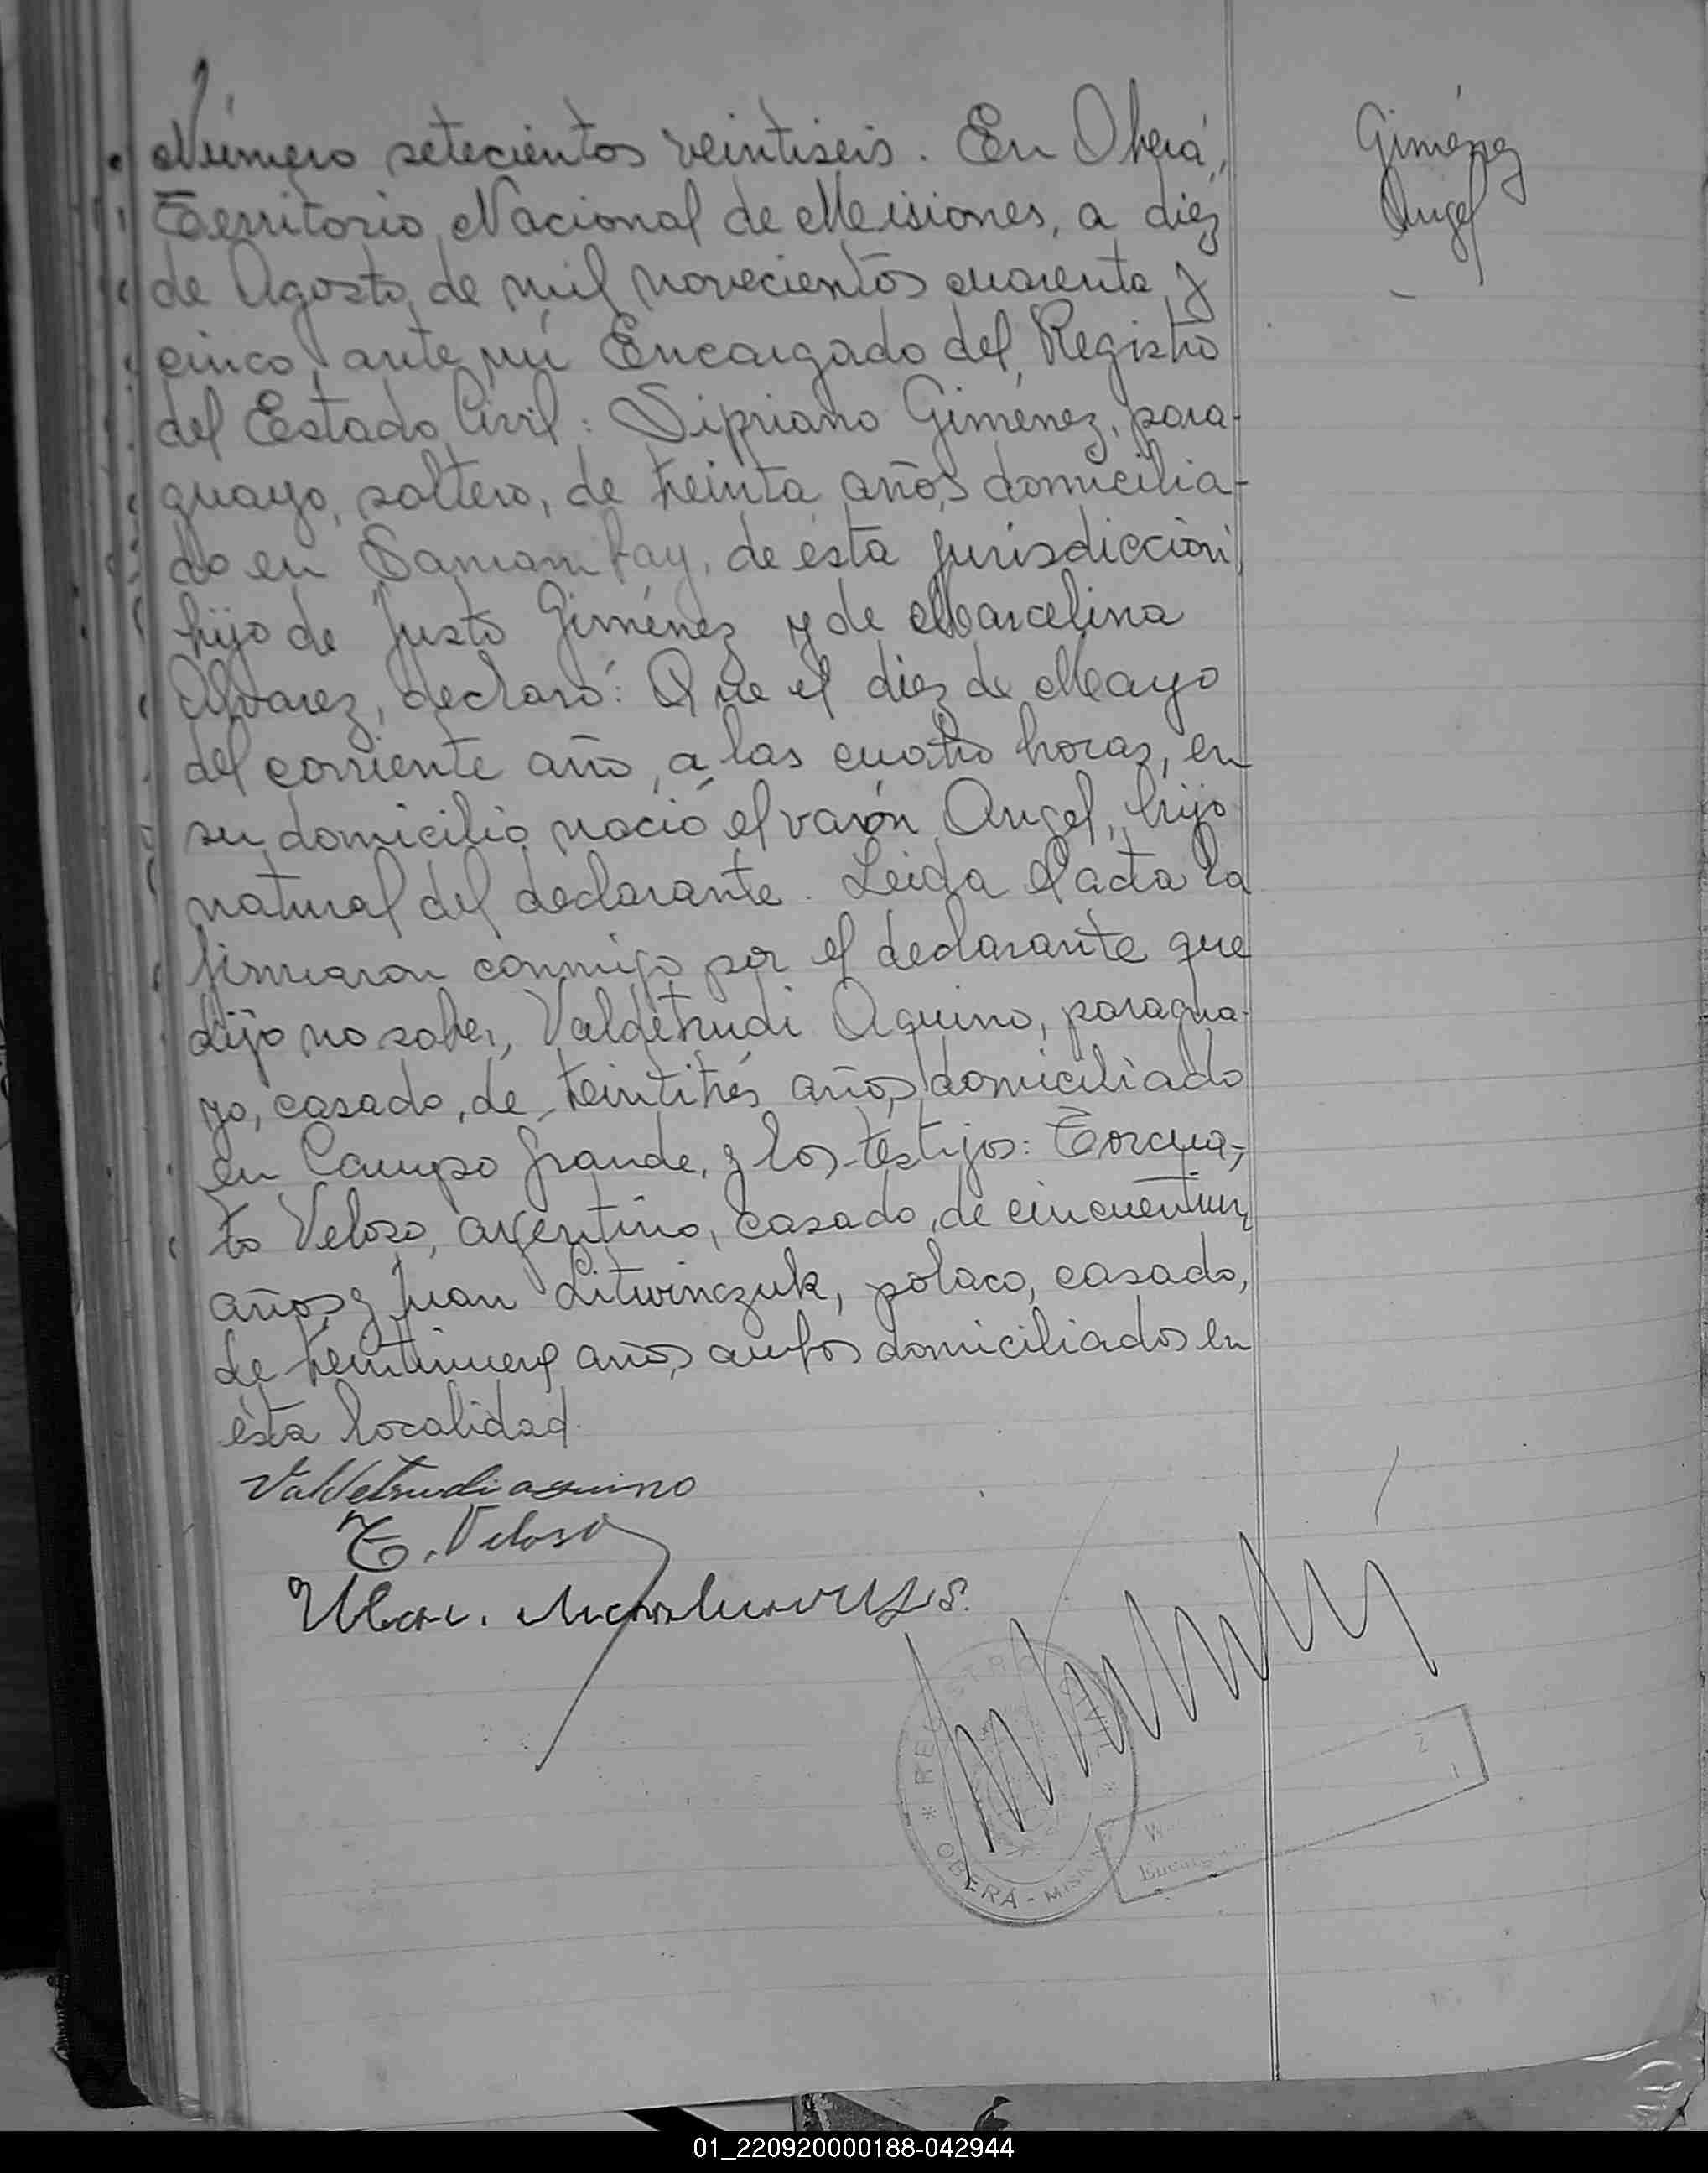 Número setecientos veintiseis. En Oberá,
Territorio Nacional de Misiones, a diez
de Agosto de mil novecientos cuarenta y
cinco, ante mí Encargado del Registro
del Estado Civil: Sipriano Giménez, para-
guayo, soltero, de treinta años, domicilia-
do en Samambay, de ésta jurisdicción,
hijo de Justo Giménez y de Marcelina
Alvarez, declaró: Que el diez de Mayo
del corriente año, a las cuatro horas, en
su domicilio nació el varón Angel, hijo
natural del declarante. Leida el acta la
firmaron conmigo por el declarante que
dijo no saber, Valdetrudi Aquino, paragua-
yo, casado, de treintitrés años, domiciliado
en Campo Grande, y los testijos: Torcua-
to Veloso, argentino, casado, de cincuentiun
años y Juan Litwinczuk, polaco, casado,
de años, ambos domiciliados en
ésta localidad.
Valdetrudi aquino
T. Veloso
Giménez
Angel
REGISTRO CIVIL
OBERÁ - MISIONES
01_220920000188-042944